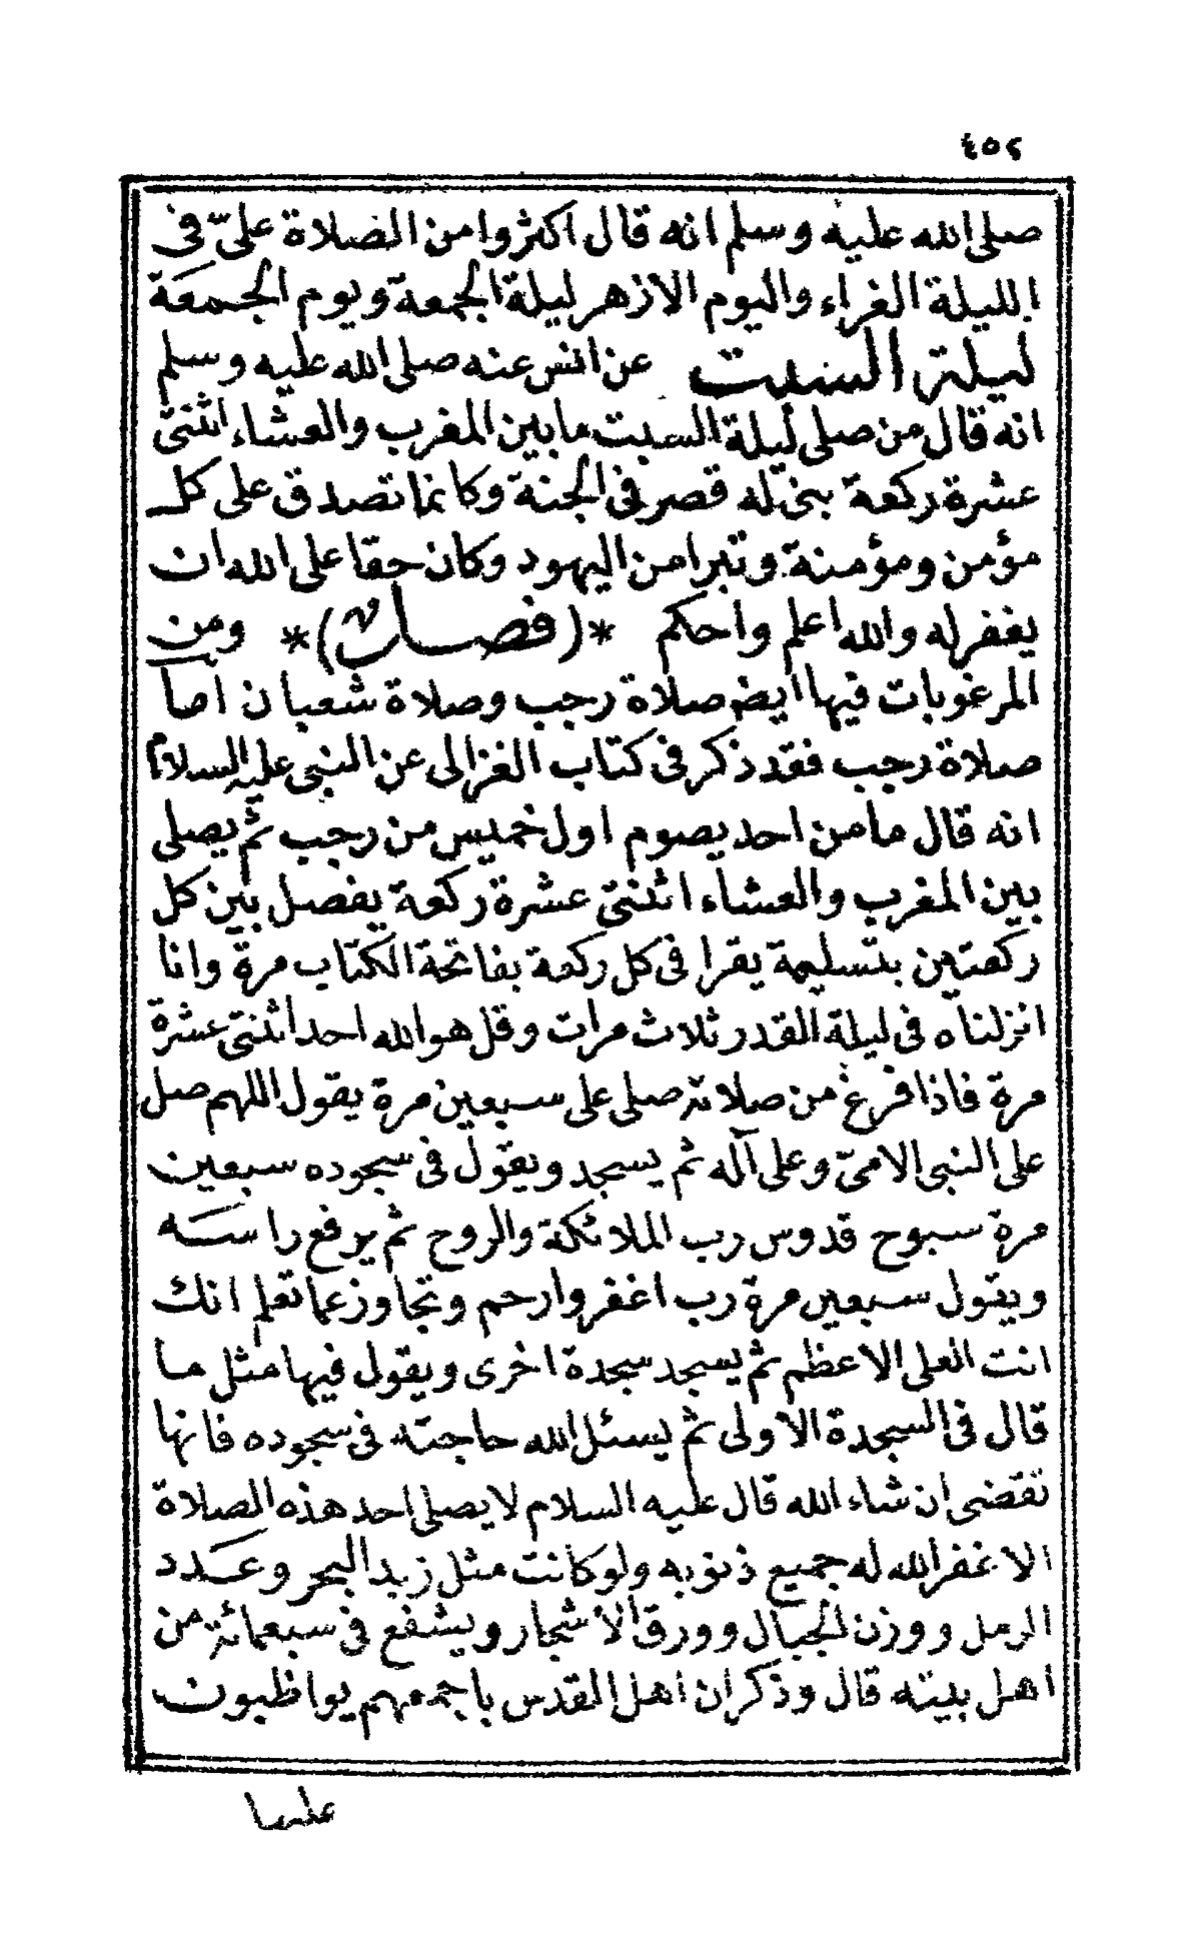 ٤٥٢
صلى الله عليه وسلم انه قال اكثروا من الصلاة علىّ فى
الليلة الغراء واليوم الازهر ليلة الجمعة ويوم الجمعة
ليلة السبت عن انس عنه صلى الله عليه وسلم
انه قال من صلى ليلة السبت ما بين المغرب والعشاء اثنتى
عشرة ركعة بنى له قصر فى الجنة وكانما تصدق على كل
مؤمن ومؤمنة وتبرا من اليهود وكان حقا على الله ان
يغفر له والله اعلم واحكم *(فصل)* ومن
المرغوبات فيها ايضا صلاة رجب وصلاة شعبان اما
صلاة رجب فقد ذكر فى كتاب الغزالى عن النبى عليه السلام
انه قال ما من احد يصوم اول خميس من رجب ثم يصلى
بين المغرب والعشاء اثنتى عشرة ركعة يفصل بين كل
ركعتين بتسليمة يقرا فى كل ركعة بفاتحة الكتاب مرة وانا
انزلناه فى ليلة القدر ثلاث مرات وقل هو الله احد اثنتى عشرة
مرة فاذا فرغ من صلاته صلى على سبعين مرة يقول اللهم صل
على النبى الامىّ وعلى آله ثم يسجد ويقول فى سجوده سبعين
مرة سبوح قدوس رب الملائكة والروح ثم يرفع راسه
ويقول سبعين مرة رب اغفر وارحم وتجاوز عما تعلم انك
انت العلى الاعظم ثم يسجد سجدة اخرى ويقول فيها مثل ما
قال فى السجدة الاولى ثم يسئل الله حاجته فى سجوده فانها
تقضى ان شاء الله قال عليه السلام لا يصلى احد هذه الصلاة
الا غفر الله له جميع ذنوبه ولو كانت مثل زبد البحر وعدد
الرمل ووزن الجبال وورق الاشجار ويشفع فى سبعمائة من
اهل بيته قال وذكر ان اهل القدس باجمعهم يواظبون
عليها